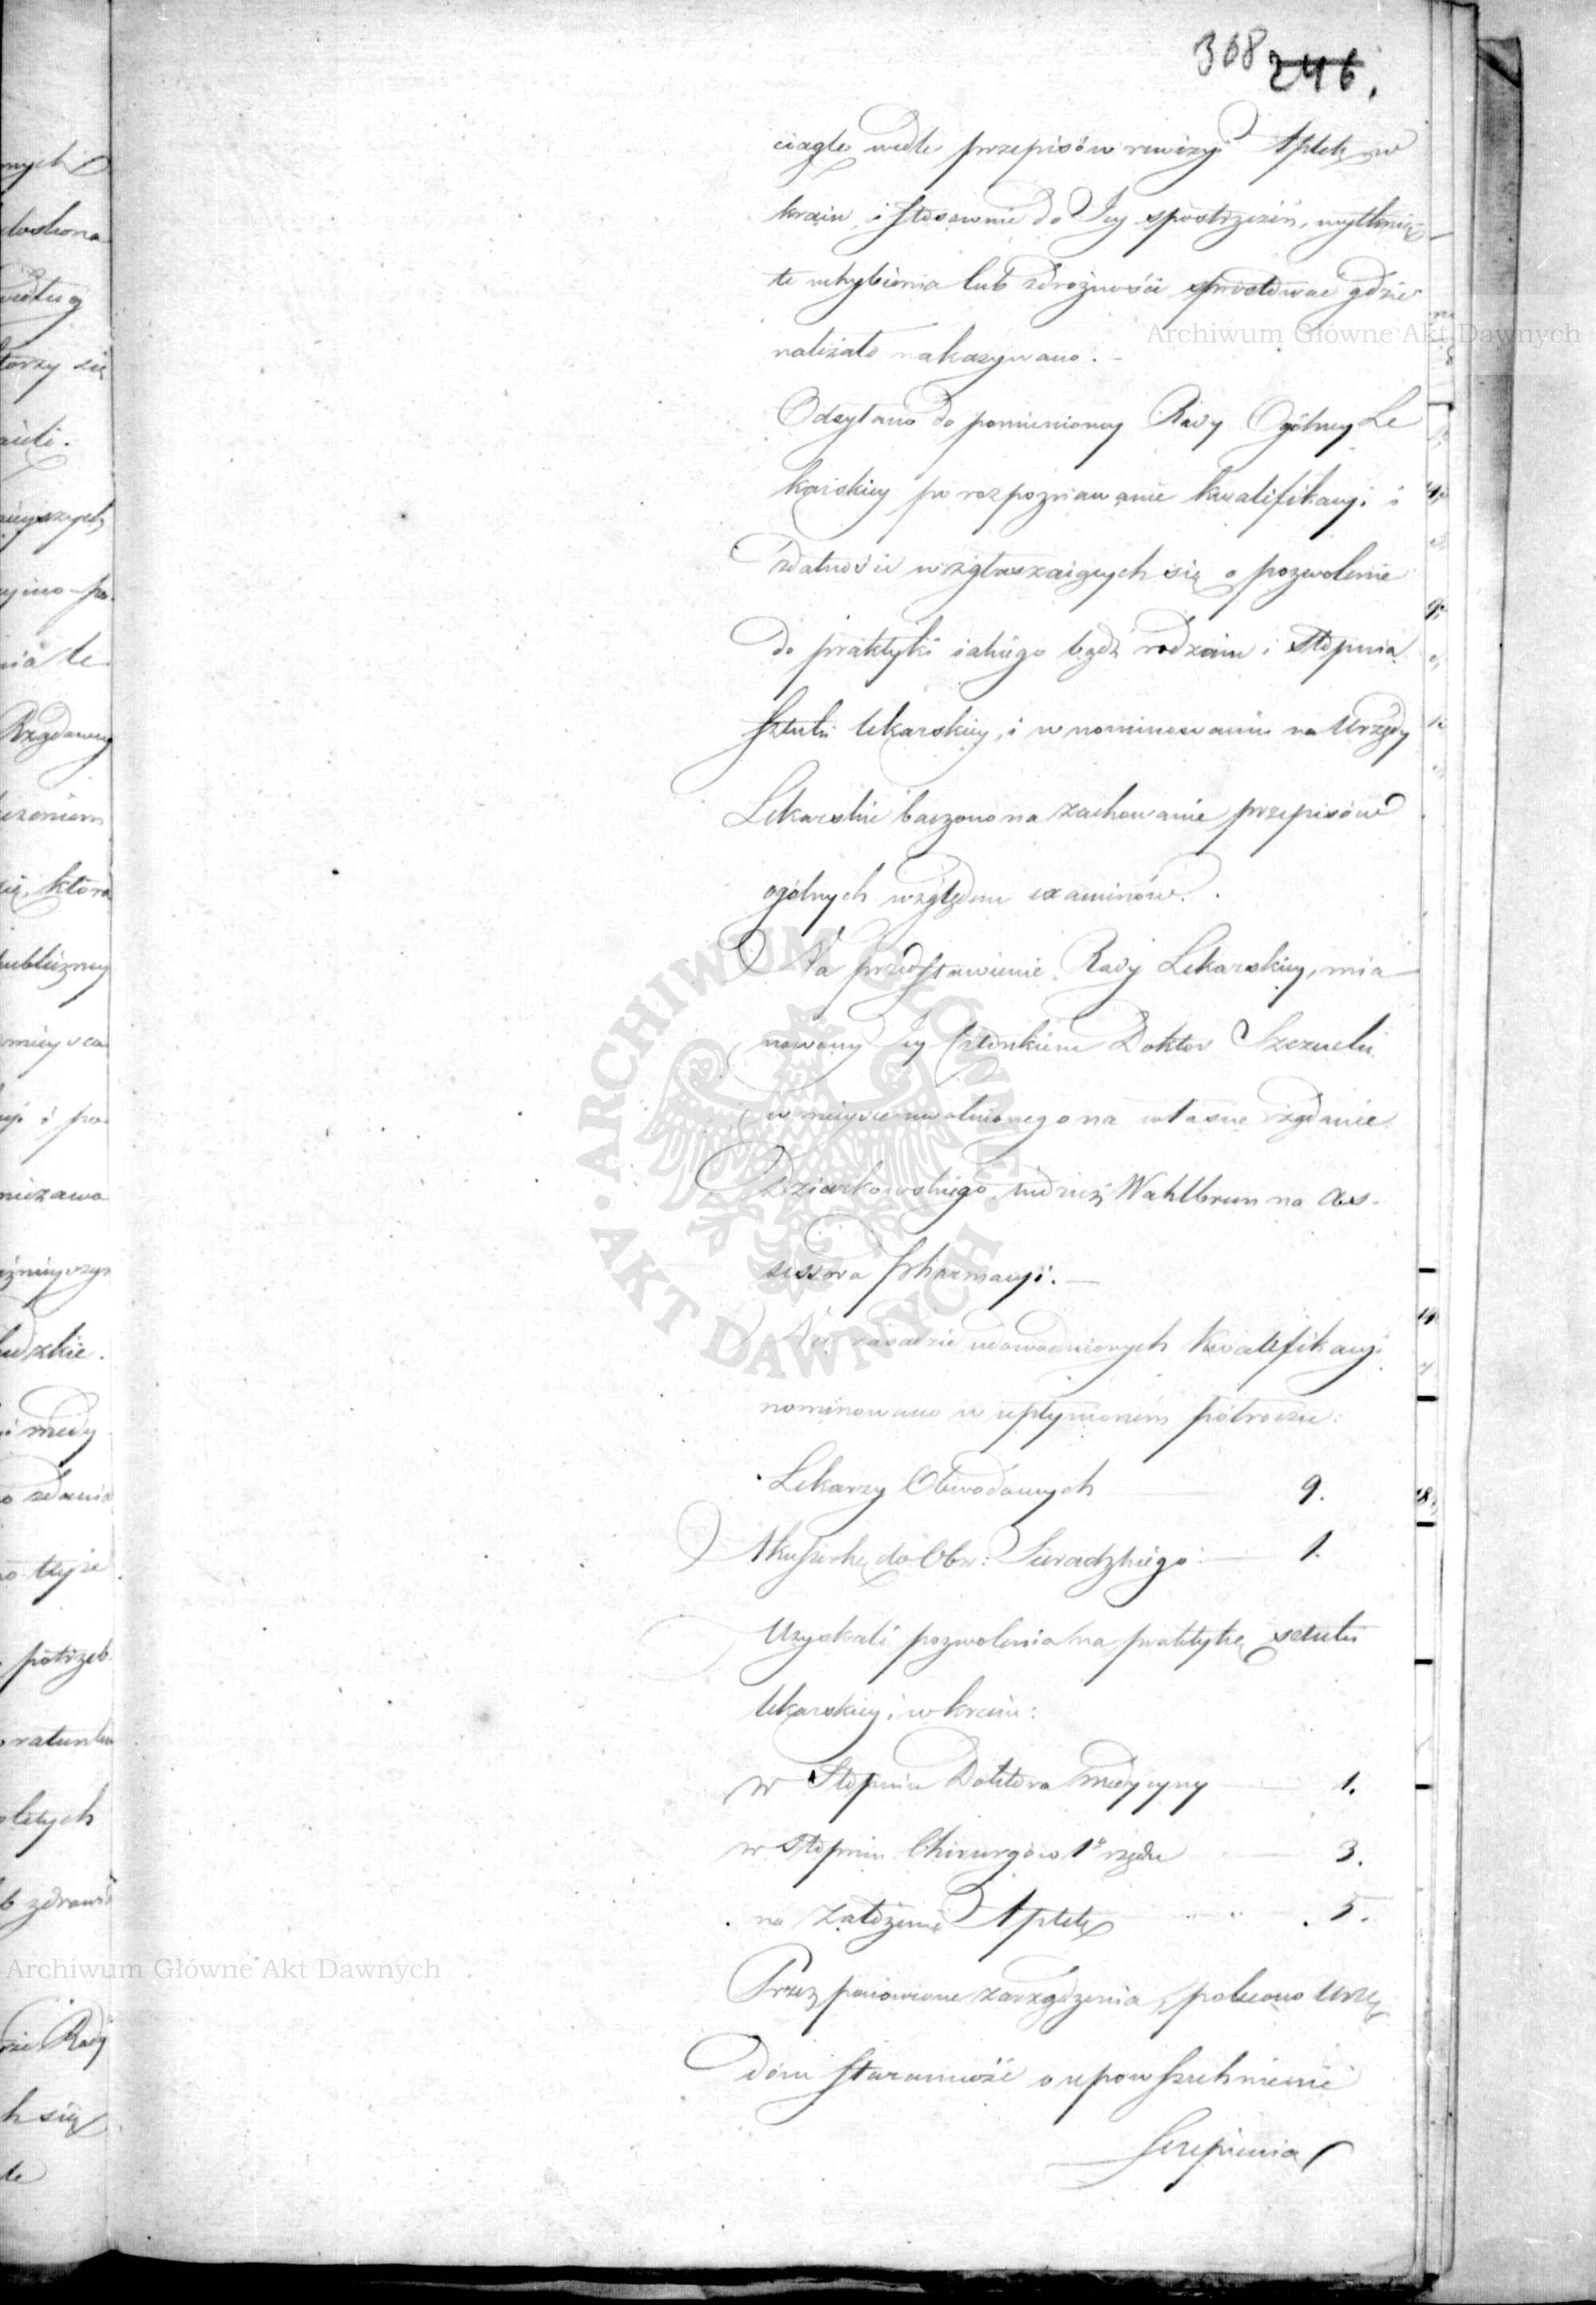 308 246.
ciągle wedle przepisów rewizyi Aptek w
kraiu, i stosownie do Jey spostrzeżeń, wytknię
te uchybienia lub zdrożności sprostować gdzie
należało nakazywano. -
Odsyłano do pomienioney Rady Ogólney Le
karskiey po rozpoznawanie kwalifikacyi i
zdatności wzgłaszaiących się o pozwolenie
do praktyki iakiego bądź rodzaiu i Stopnia
Sztuki lekarskiey, i w nominowaniu na Urzędy
Lekarskie baczono na zachowanie przepisów
ogólnych względem examinów.
Na przedstawienie Rady Lekarskiey, mia
nowany Jey Członkiem Doktor
w mieysce uwolnionego na własne żądanie
Dziarkowskiego, tudzież Wahlbrun na As-
sessora Pharmacyi. —
Na zasadzie udowodnionych Kwalifikacyi
nominowano w upłynioném półroczu:
Lekarzy Obwodowych — 9.
Akuszerkę do Obw: Sieradzkiego — 1.
Uzyskali pozwolenia na praktykę sztuki
lekarskiey, w kraiu:
w Stopniu Doktora medycyny — 1.
w Stopniu Chirurgów 1º rzędu — 3.
na założenie Aptek — 5.
Przez ponowione zarządzenia, polecono Urzę
dom staranność o upowszechnienie
szczepienia
mych
doskona
według
torzy się
niate
Rządowey
która
publiczney
i medy
potrzeb
ratunku
zdrowi
Rady
h się
Archiwum Główne Akt Dawnych
ARCHIWUM GŁÓWNE AKT DAWNYCH
Archiwum Główne Akt Dawnych